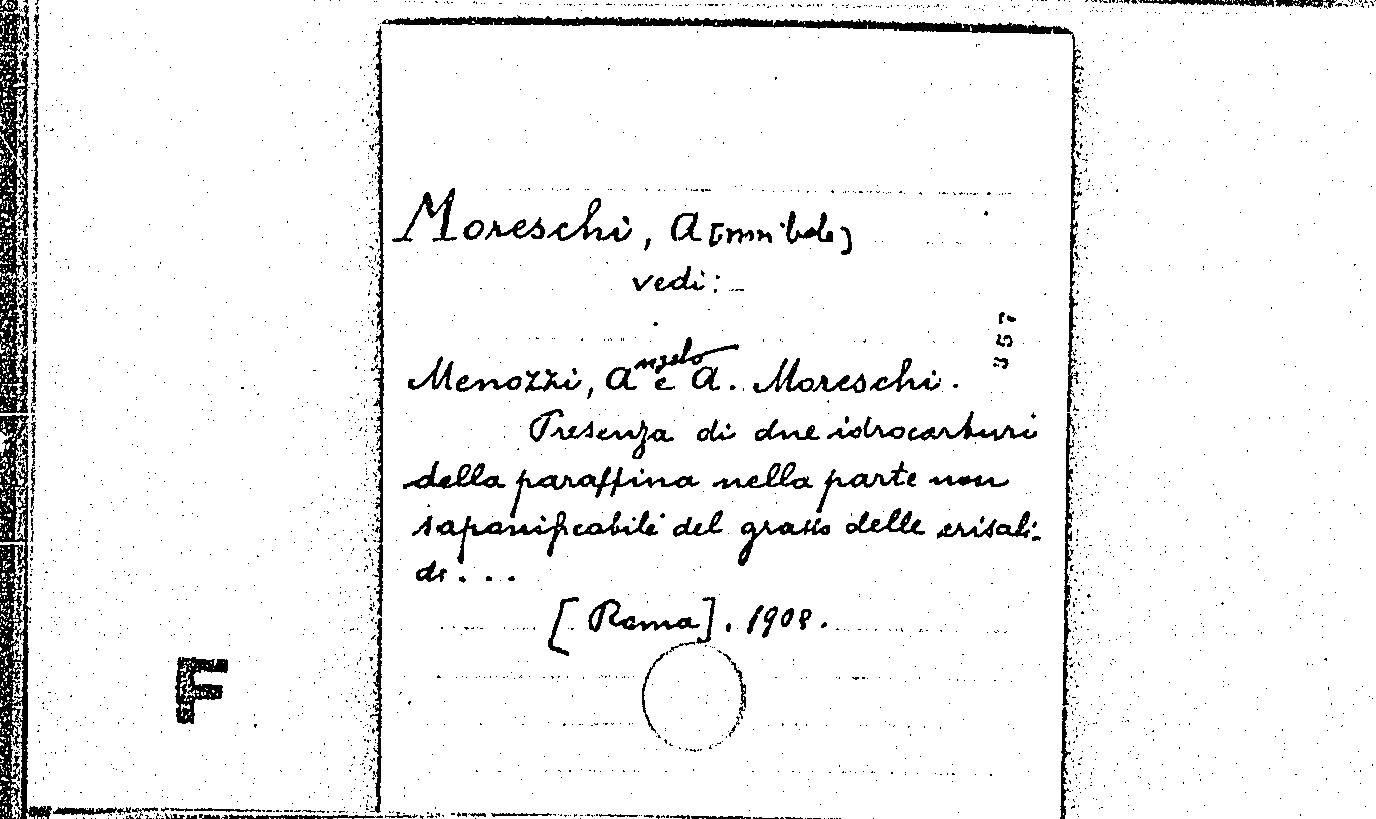 Moreschi, A[nnibale]
vedi:
957
Menozzi, Angelo e A. Moreschi.
Presenza di due idrocarburi
della paraffina nella parte non
saponificabile del grasso delle crisali-
di...
[Roma]. 1908.
F